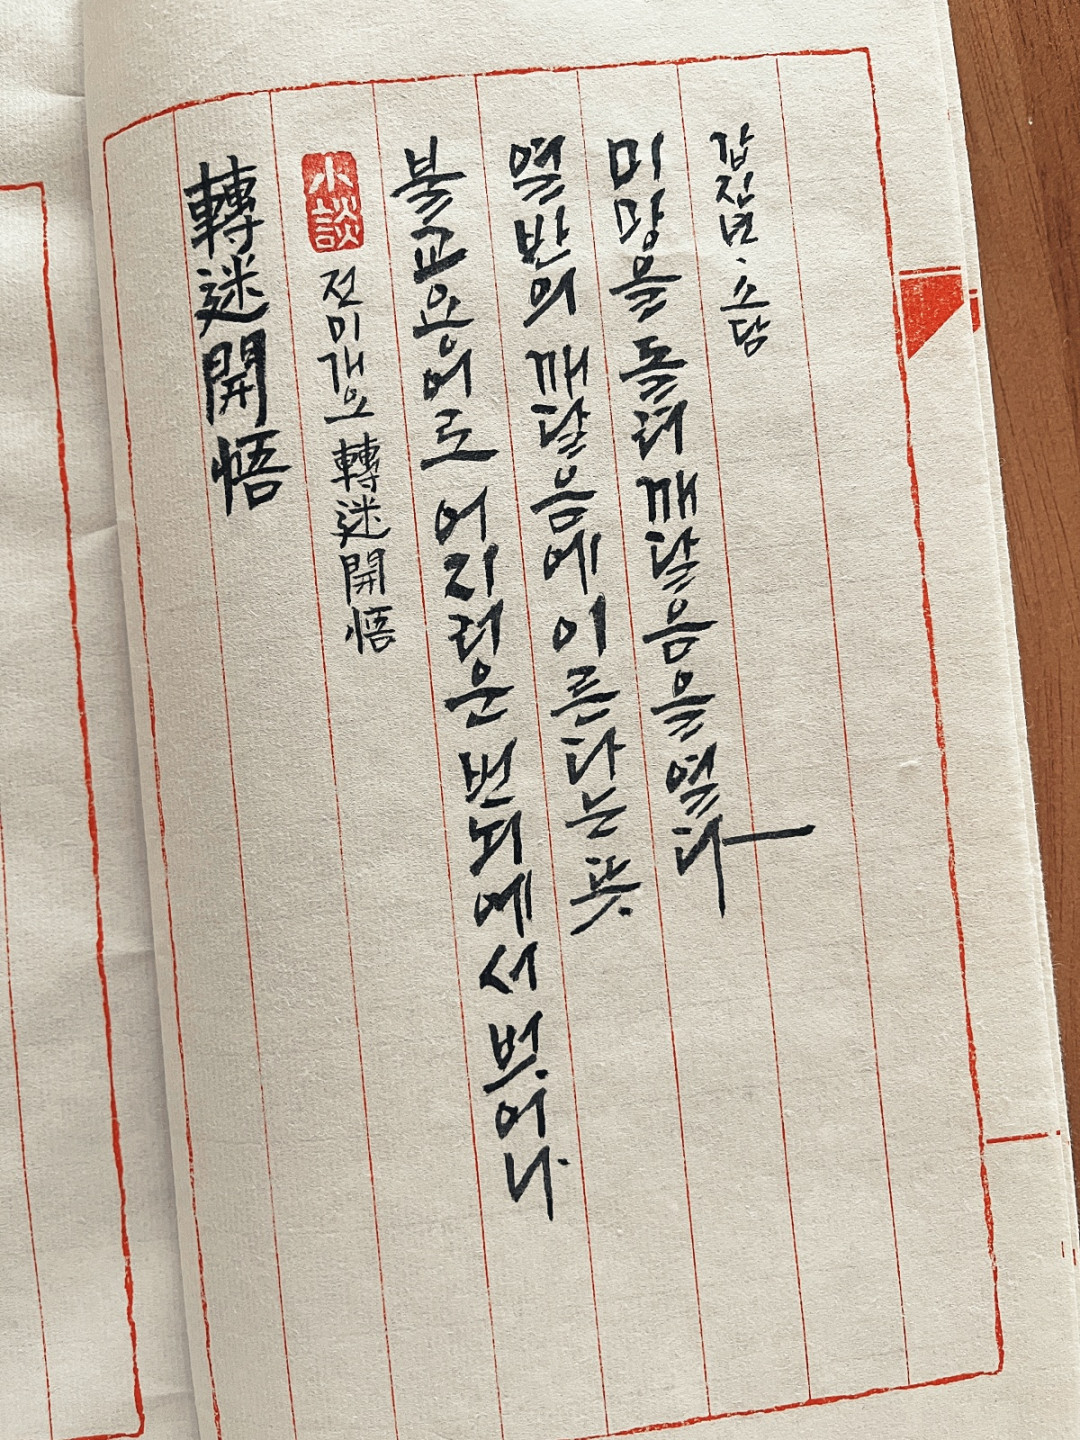 轉迷開悟
小談
전미개오 轉迷開悟
불교용어로 어지러운 번뇌에서 벗어나
열반의 깨달음에 이른다는 뜻.
미망을 돌려 깨달음을 열다
갑진년. 소담